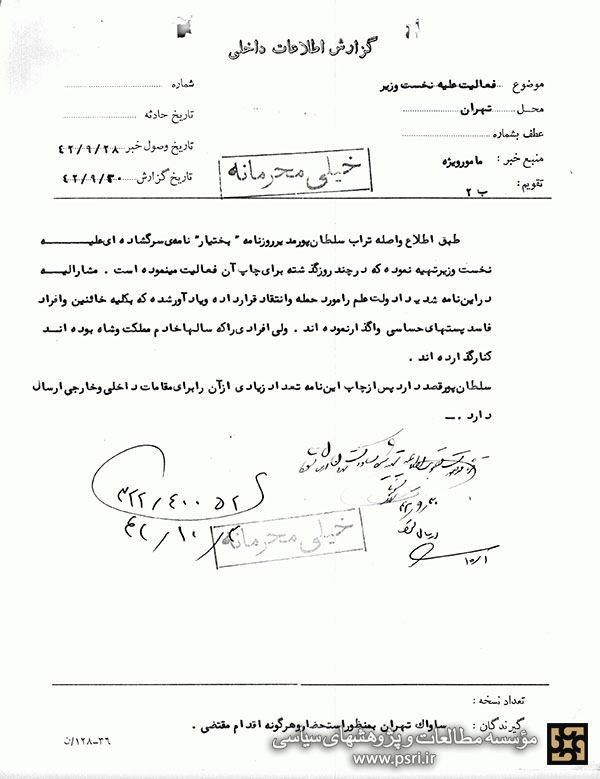 گزارش اطلاعات داخلی
موضوع فعالیت علیه نخست وزیر
شماره
محل تهران
تاریخ حادثه
عطف بشماره
تاریخ وصول خبر ۴۲/۹/۲۸
منبع خبر : مامورویژه
تاریخ گزارش ۴۲/۹/۳۰
تقویم : ب ۲
خیلی محرمانه
طبق اطلاع واصله تراب سلطان‌پورمدیرروزنامه "بختیار" نامه‌ی سرگشاده ای علیه
نخست وزیرتهیه نموده که درچند روزگذشته برای چاپ آن فعالیت مینموده است . مشارالیه
دراین‌نامه شدیدا دولت علم رامورد حمله وانتقاد قرارداده ویادآورشده که بکلیه خائنین وافراد
فاسد پستهای حساسی واگذارنموده اند . ولی افرادی راکه سالهاخادم مملکت وشاه بوده اند
کنارگذارده اند .
سلطان‌پورقصد دارد پس‌ازچاپ این‌نامه تعداد زیادی ازآن رابرای مقامات داخلی وخارجی ارسال
دارد .
۳۲۲/۴۰۰۵۲
خیلی محرمانه
تعداد نسخه :
گیرندگان : ساواک تهران بمنظوراستحضاروهرگونه اقدام مقتضی .
۱۲۸-۳۶/ن
مؤسسه مطالعات و پژوهشهای سیاسی
www.psri.ir